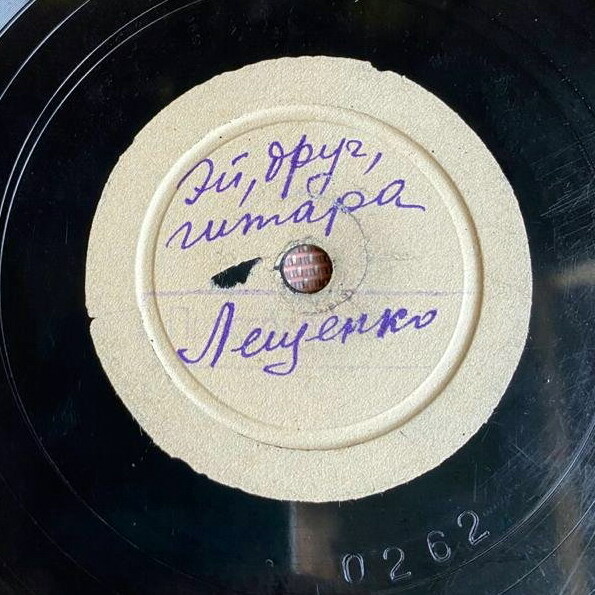 Эй, друг,
гитара
Лещенко
0262